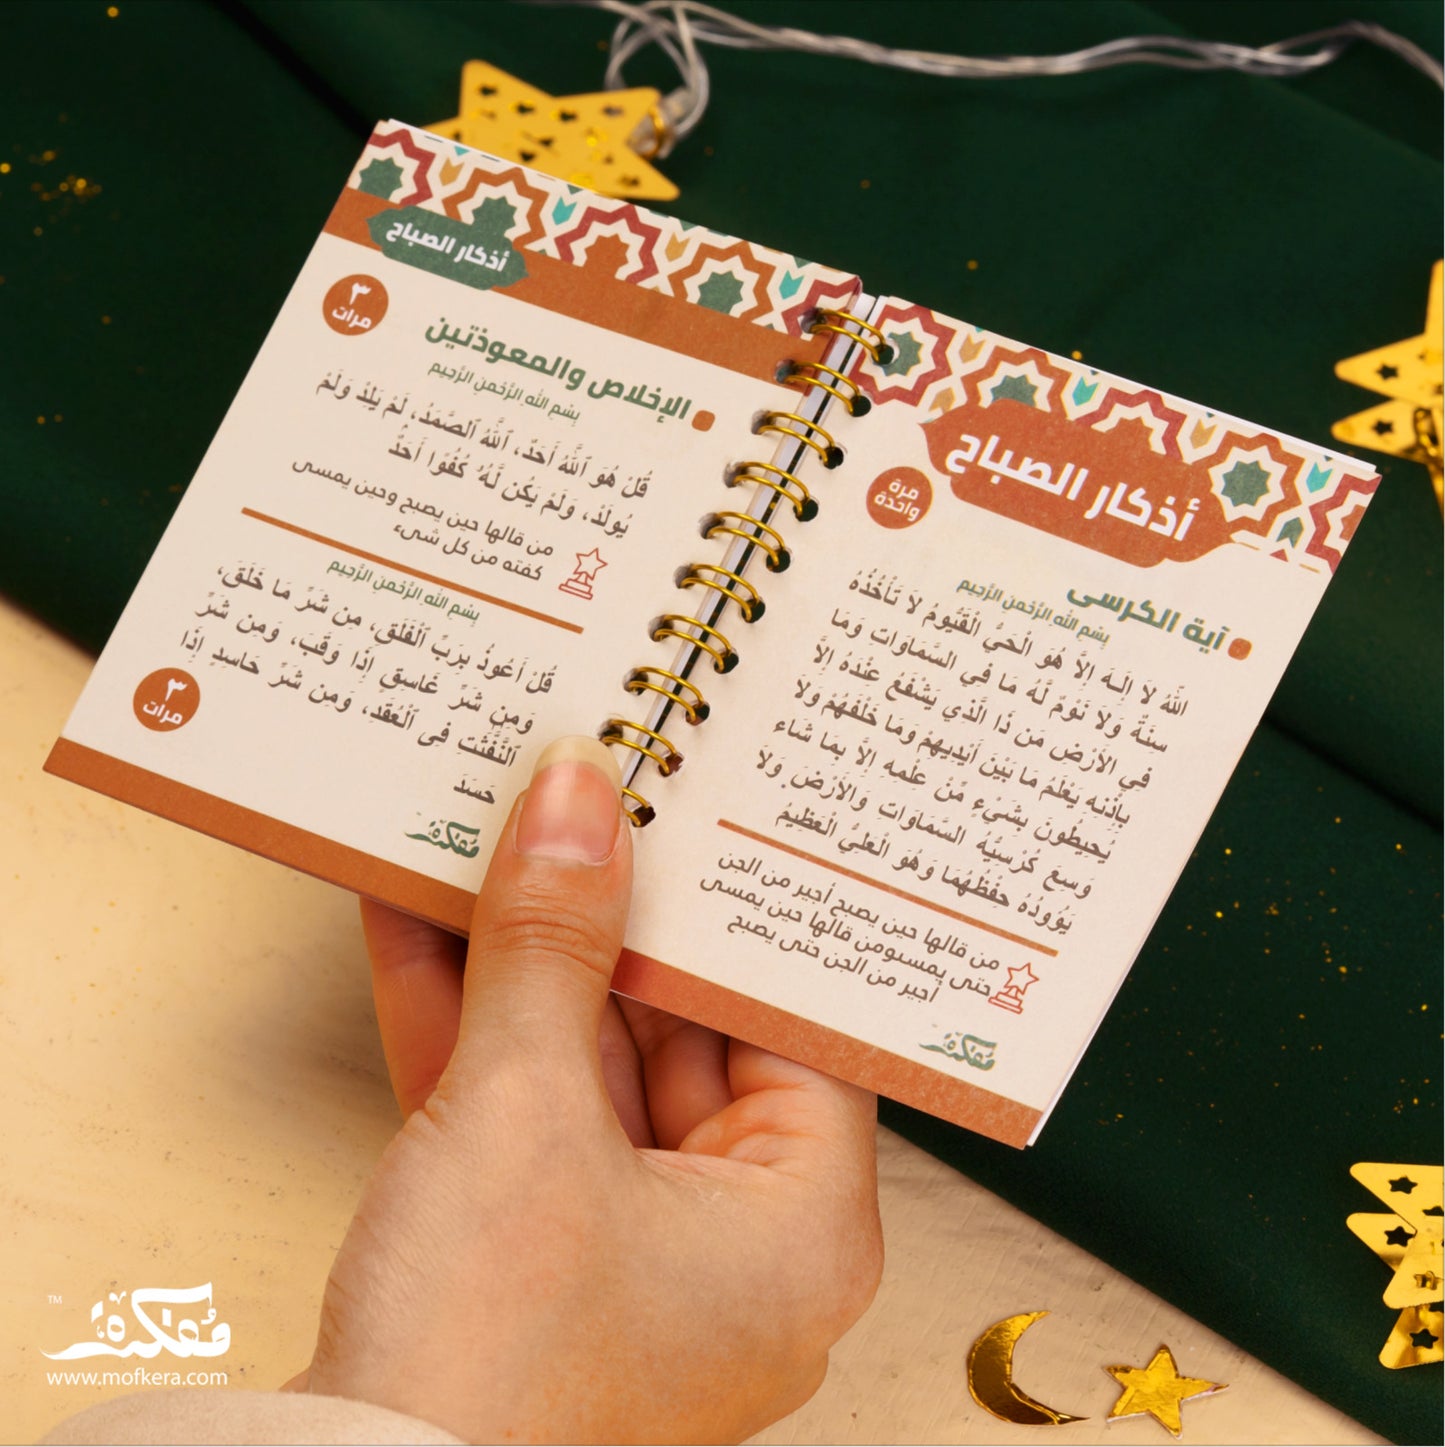 أذكار الصباح
مرة
واحدة
آية الكرسى
بِسْمِ اللهِ الرَّحْمنِ الرَّحِيم
اللّهُ لاَ إِلَـهَ إِلاَّ هُوَ الْحَيُّ الْقَيُّومُ لاَ تَأْخُذُهُ
سِنَةٌ وَلاَ نَوْمٌ لَّهُ مَا فِي السَّمَاوَاتِ وَمَا
فِي الأَرْضِ مَن ذَا الَّذِي يَشْفَعُ عِنْدَهُ إِلاَّ
بِإِذْنِهِ يَعْلَمُ مَا بَيْنَ أَيْدِيهِمْ وَمَا خَلْفَهُمْ وَلاَ
يُحِيطُونَ بِشَيْءٍ مِّنْ عِلْمِهِ إِلاَّ بِمَا شَاء
وَسِعَ كُرْسِيُّهُ السَّمَاوَاتِ وَالأَرْضَ وَلاَ
يَؤُودُهُ حِفْظُهُمَا وَهُوَ الْعَلِيُّ الْعَظِيمُ
من قالها حين يصبح أجير من الجن
حتى يمسىومن قالها حين يمسى
أجير من الجن حتى يصبح
مفكرة
أذكار الصباح
٣
مرات
الإخلاص والمعوذتين
بِسْمِ اللهِ الرَّحْمنِ الرَّحِيم
قُلْ هُوَ ٱللَّهُ أَحَدٌ، ٱللَّهُ ٱلصَّمَدُ، لَمْ يَلِدْ وَلَمْ
يُولَدْ، وَلَمْ يَكُن لَّهُۥ كُفُوًا أَحَدٌۢ
من قالها حين يصبح وحين يمسى
كفته من كل شىء
بِسْمِ اللهِ الرَّحْمنِ الرَّحِيم
قُلْ أَعُوذُ بِرَبِّ ٱلْفَلَقِ، مِن شَرِّ مَا خَلَقَ،
وَمِن شَرِّ غَاسِقٍ إِذَا وَقَبَ، وَمِن شَرِّ
ٱلنَّفَّٰثَٰتِ فِى ٱلْعُقَدِ، وَمِن شَرِّ حَاسِدٍ إِذَا
حَسَدَ
٣
مرات
مفكرة
مفكرة
TM
www.mofkera.com